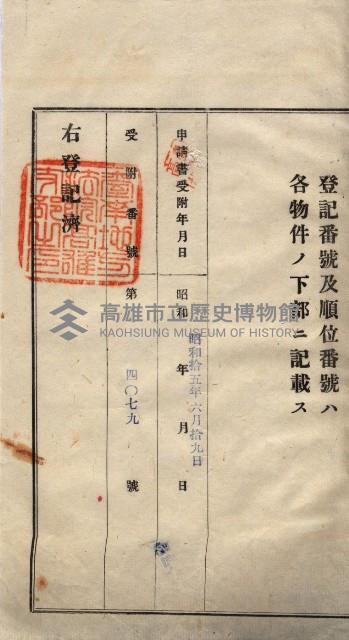 登記番號及順位番號ハ
各物件ノ下部ニ記載ス
申請書受附年月日
昭和 年 月 日
昭和拾五年六月拾九日
受附番號
第 四〇七九 號
右登記濟
高雄市立歷史博物館
KAOHSIUNG MUSEUM OF HISTORY